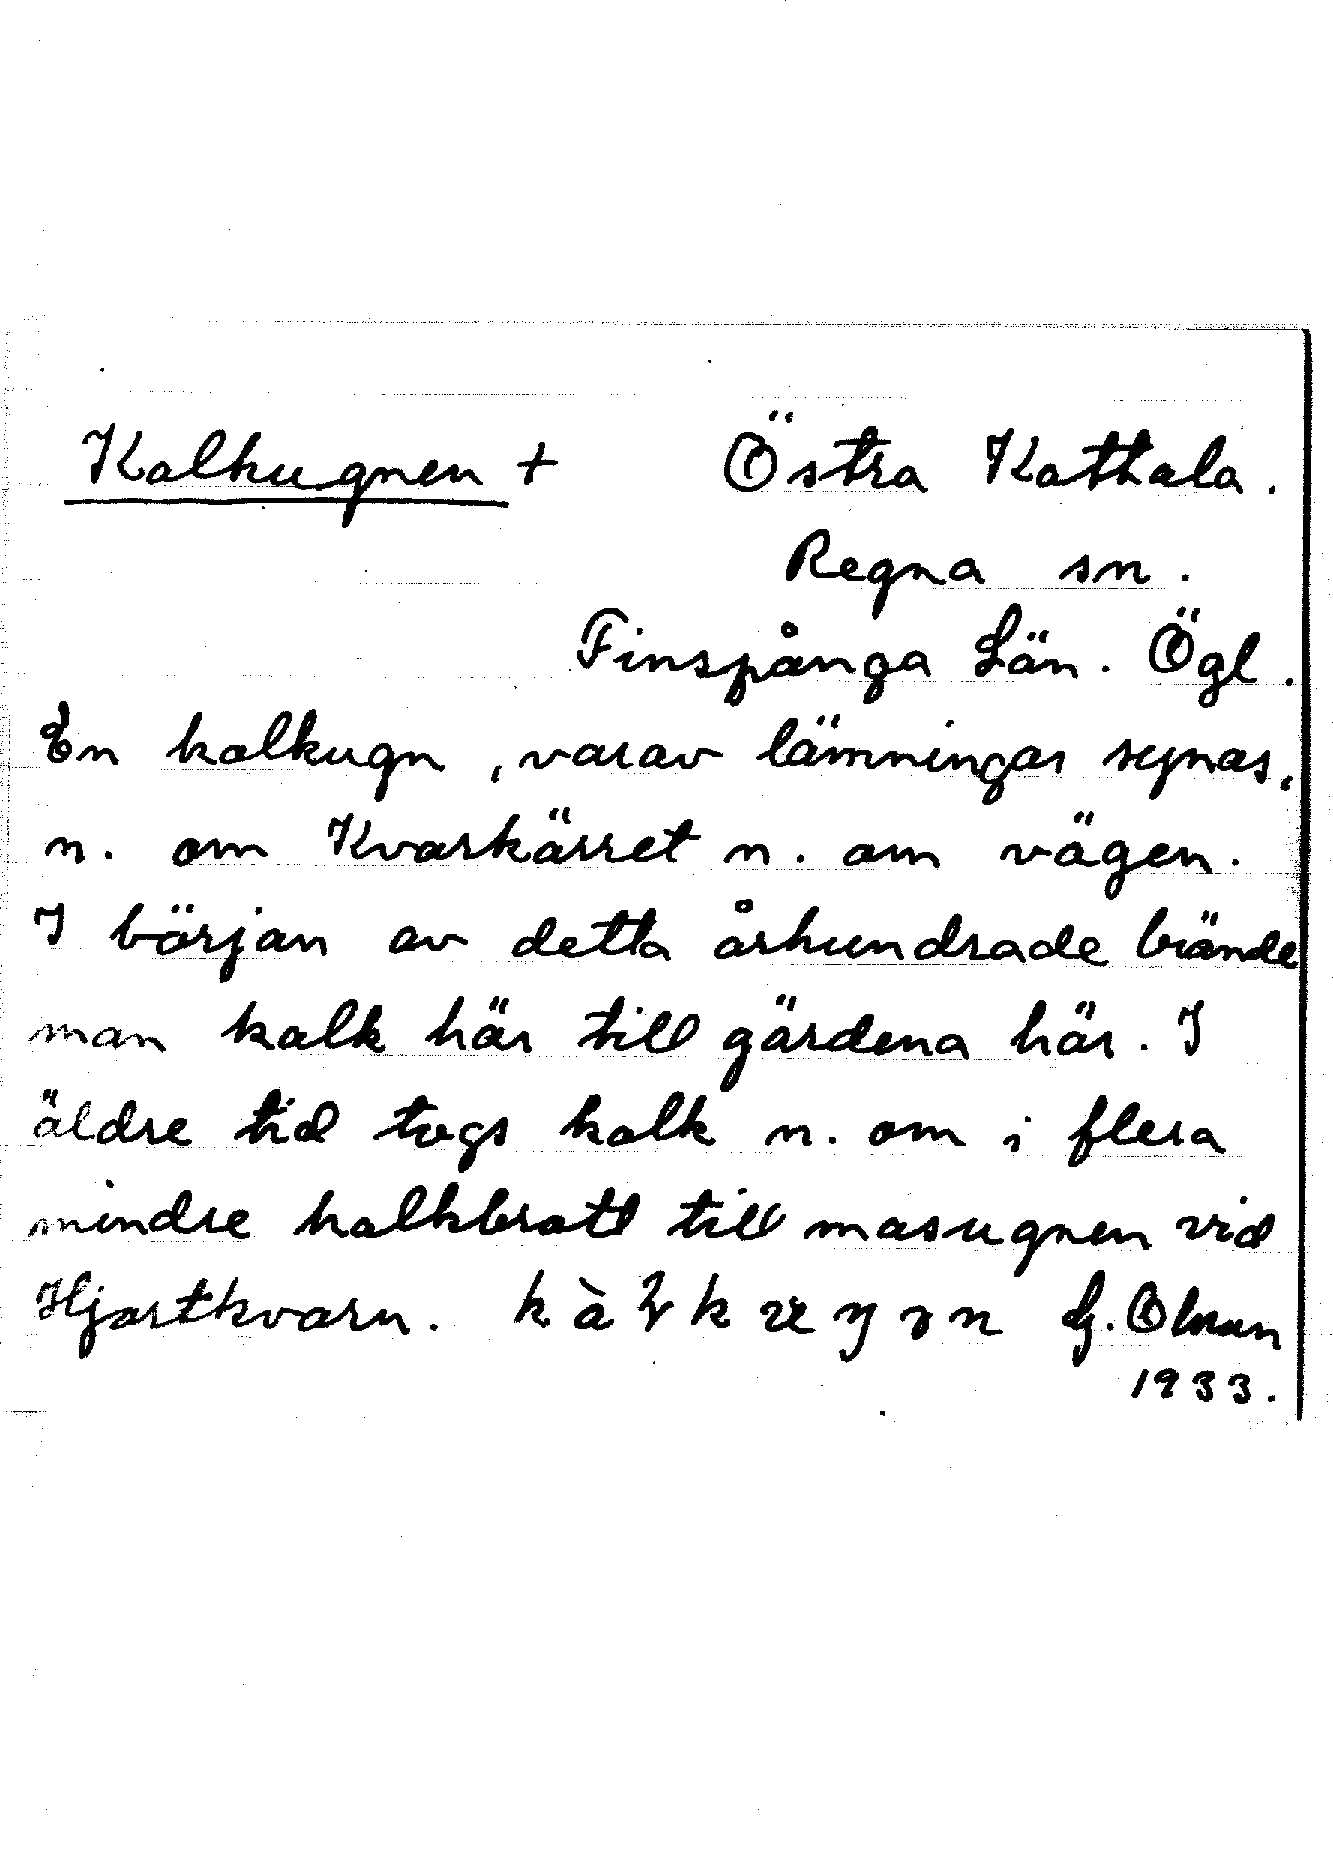 Kalkugnen + Östra Kattala.
Regna sn.
Finspånga Län. Ögl.
En kalkugn, varav lämningar synas,
n. om Kvarkärret n. om vägen.
I början av detta århundrade brände
man kalk här till gårdena här. I
äldre tid togs kalk n. om i flera
mindre kalkbrott till masugnen vid
Hjortkvarn. G. Olsson
1933.